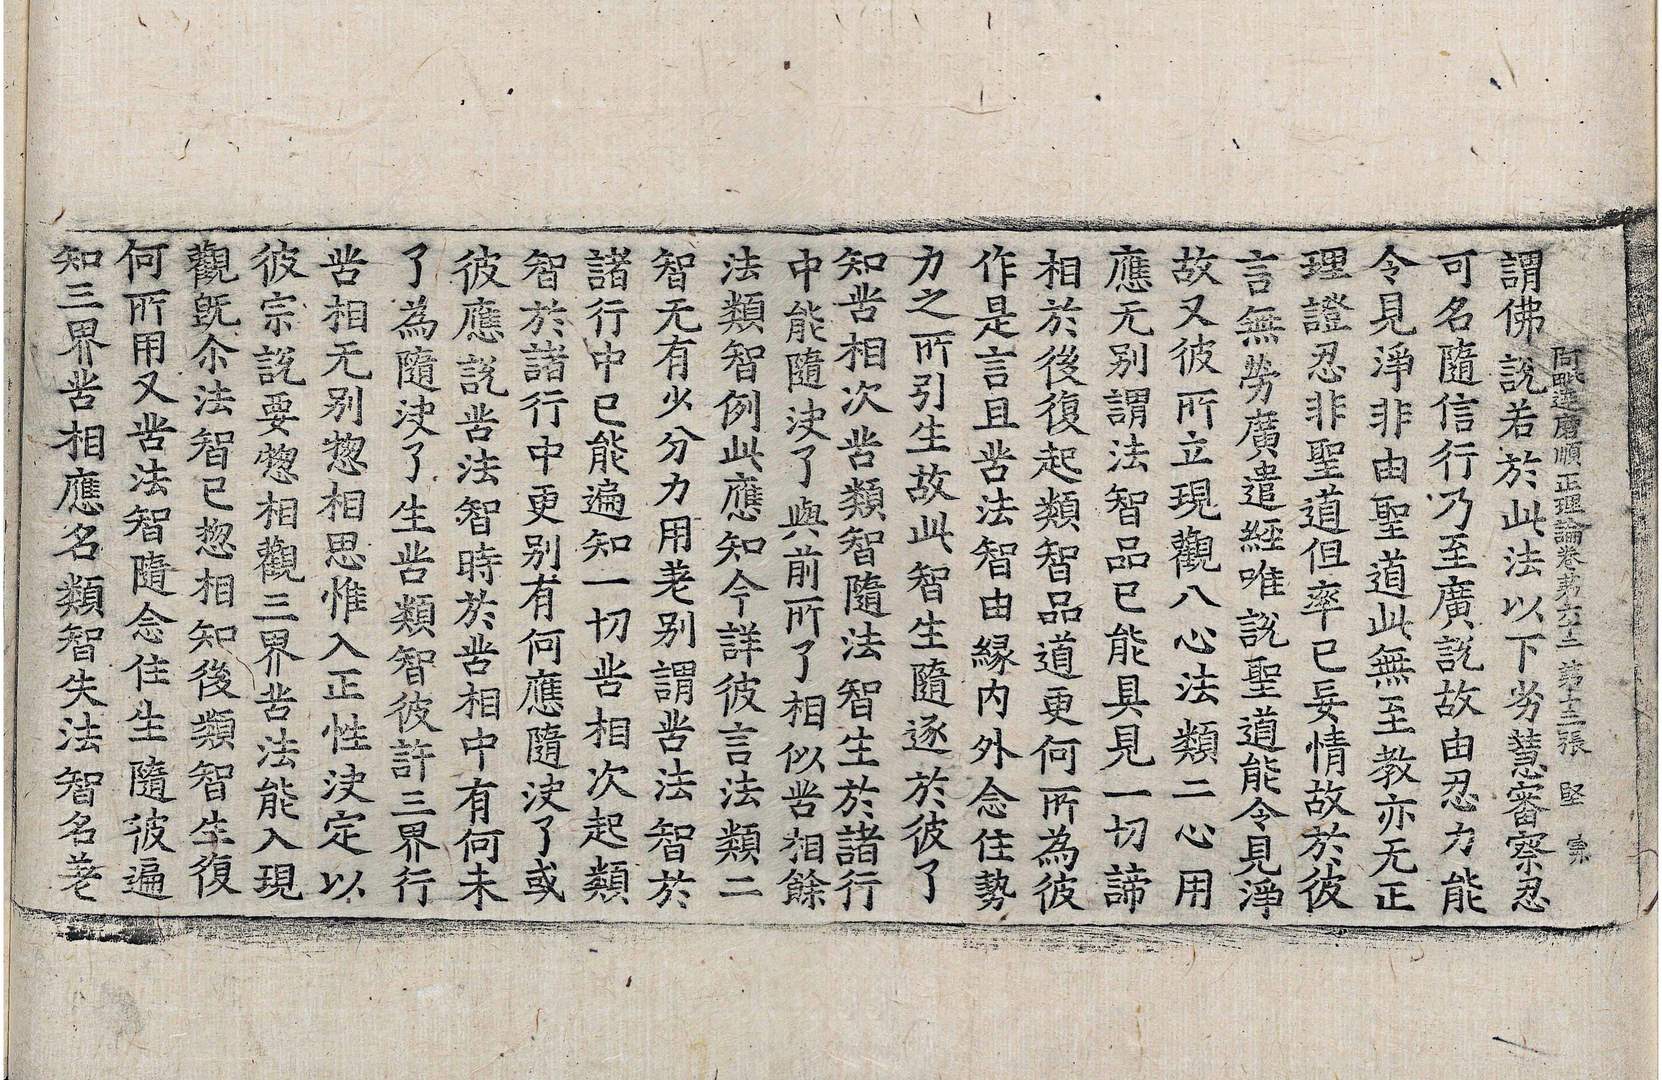 阿毗達磨順正理論卷苐六十二 第十三張 堅
謂佛說若於此法以下劣慧審察忍
可名隨信行乃至廣說故由忍力能
令見淨非由聖道此無至教亦无正
理證忍非聖道但率已妄情故於彼
言無勞廣遣經唯說聖道能令見淨
故又彼所立現觀八心法類二心用
應无别謂法智品已能具見一切諦
相於後復起類智品道更何所為彼
作是言且苦法智由緣内外念住勢
力之所引生故此智生隨逐於彼了
知苦相次苦類智隨法智生於諸行
中能隨決了與前所了相似苦相餘
法類智例此應知今詳彼言法類二
智无有少分力用差别謂苦法智於
諸行中已能遍知一切苦相次起類
智於諸行中更别有何應隨決了或
彼應說苦法智時於苦相中有何未
了為隨決了生苦類智彼許三界行
苦相无别惣相思惟入正性決定以
彼宗說要惣相觀三界苦法能入現
觀旣尒法智已惣相知後類智生復
何所用又苦法智隨念住生隨彼遍
知三界苦相應名類智失法智名差